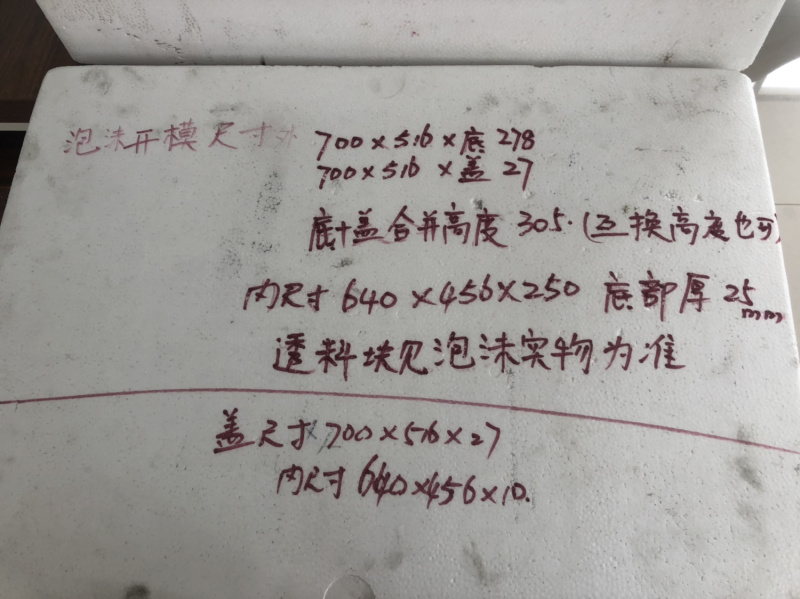 泡沫开模尺寸外 700×516×底278
700×516×盖27
底十盖合并高度 305.(互换高度也可)
内尺寸 640×456×250 底部厚 25mm
透料块见泡沫实物为准
盖尺寸 700×516×27
内尺寸 640×456×10.